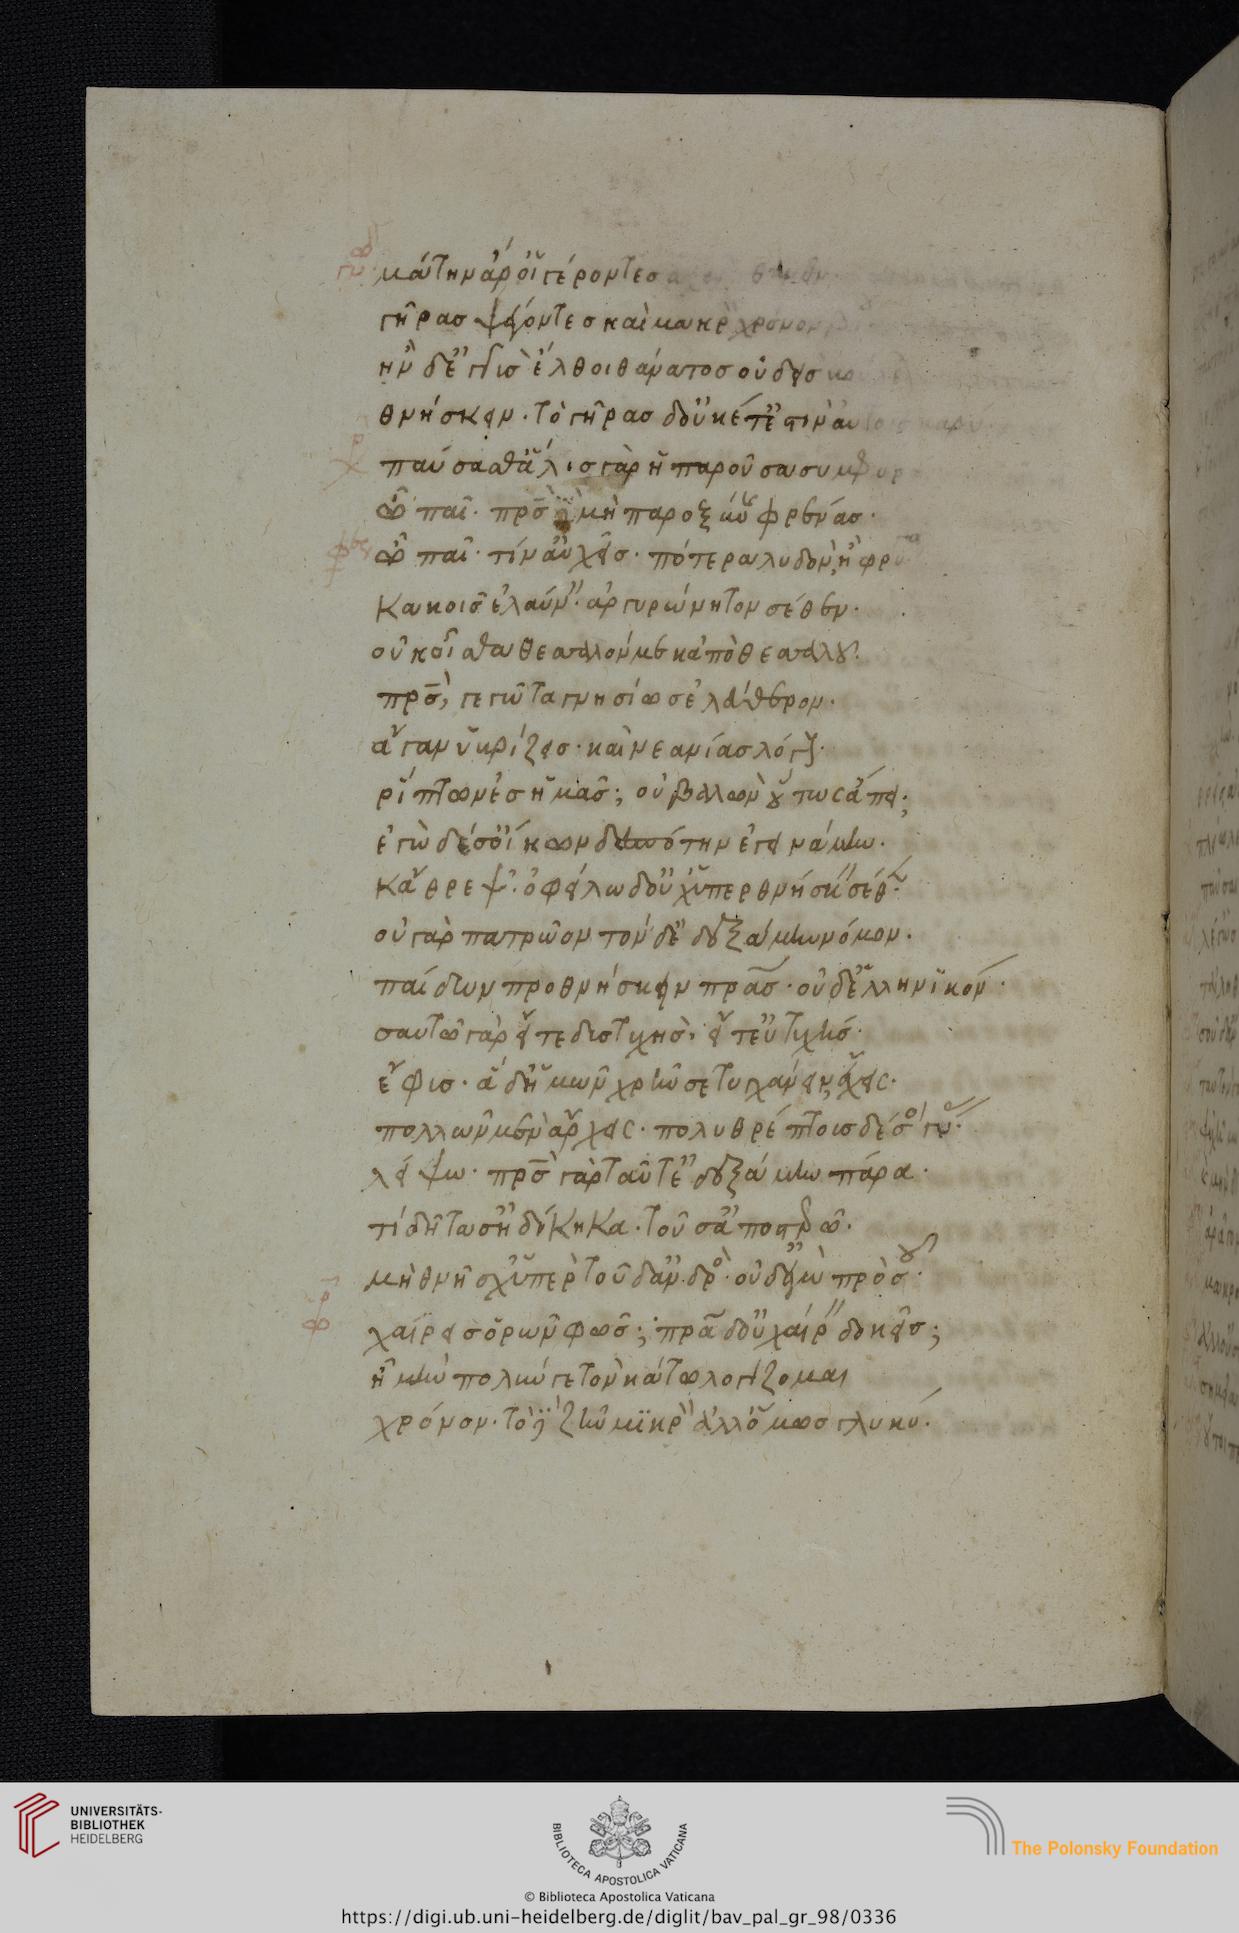 μάτην ἄρ' οἱ γέροντες
γῆρας ψέγοντες καὶ μακρὸν χρόνον
ἢν δ' ἐγγὺς ἔλθοι θάνατος οὐδεὶς
θνήσκειν· τὸ γῆρας δ' οὐκέτ' ἔστιν
παύσασθ' ἅλις γὰρ ἡ παροῦσα συμφορ
ὦ παῖ· πρὸς μὴ παροξύνῃς φρένας·
ὦ παῖ· τίν' αὐχεῖς· πότερα λυδὸν, ἢ φρύγα
κακοῖς ἐλαύνειν· ἀργυρώνητον σέθεν·
οὐκ οἶσθα θεσσαλόν με κἀπὸ θεσσαλοῦ·
πρς, γεγῶτα γνησίως ἐλεύθερον·
ἄγαν ὑβρίζεις· καὶ νεανίας λόγους·
ῥίπτων ἐς ἡμᾶς; οὐ βαλὼν οὕτως ἄπει;
ἐγὼ δέ σ' οἴκων δεσπότην ἐγεινάμην·
κἄθρεψ'· ὀφείλω δ' οὐχ ὑπερθνήσκειν σέθεν·
οὐ γὰρ πατρῷον τόνδ' ἐδεξάμην νόμον·
παίδων προθνήσκειν πρας· οὐδ' ἑλληνικόν·
σαυτῷ γὰρ εἴτε δυστυχὴς, εἴτ' εὐτυχὴς·
ἔφυς· ἃ δ' ἡμῶν χρῆν σε τυγχάνειν, ἔχεις·
πολλῶν μὲν ἄρχεις· πολυπλέθρους δέ σοι γύας·
λείψω· πρς γὰρ ταῦτ' ἐδεξάμην πάρα·
τί δῆτα σ' ἠδίκηκα· τοῦ σ' ἀποστερῶ·
μὴ θνῆσχ' ὑπὲρ τοῦδ' ἀνδρὸς· οὐδ' ἐγὼ πρὸ σοῦ·
χαίρεις ὁρῶν φῶς; πρα δ' οὐ χαίρειν δοκεῖς;
ἦ μὴν πολύν γε τὸν κάτω λογίζομαι
χρόνον· τὸ δὲ ζῆν μικρὸν ἀλλ' ὅμως γλυκύ·
UNIVERSITÄTS-
BIBLIOTHEK
HEIDELBERG
BIBLIOTECA APOSTOLICA VATICANA
The Polonsky Foundation
© Biblioteca Apostolica Vaticana
https://digi.ub.uni-heidelberg.de/diglit/bav_pal_gr_98/0336